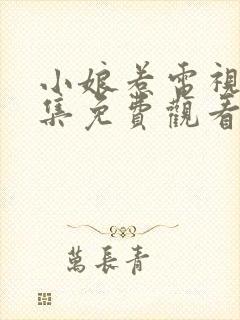 小娘若雷視
集免費觀看
萬長青